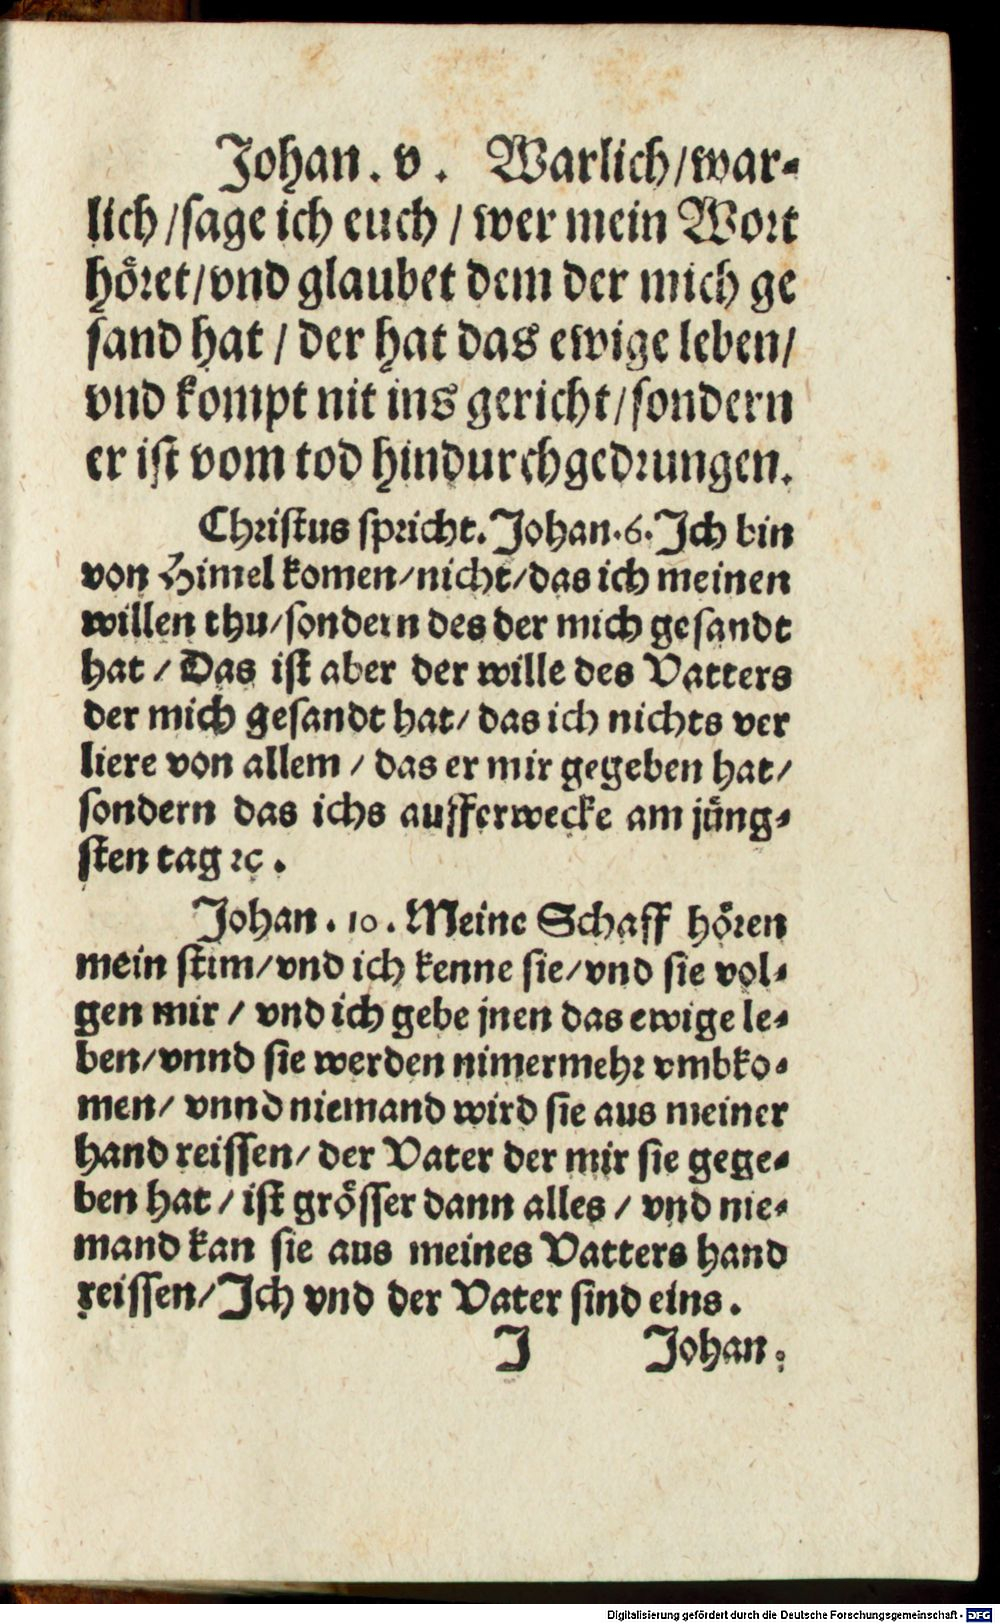 Johan. v. Warlich/war⸗
lich/sage ich euch / wer mein Wort
höret/vnd glaubet dem der mich ge
sand hat / der hat das ewige leben/
vnd kompt nit ins gericht/sondern
er ist vom tod hindurchgedrungen.
Christus spricht. Johan. 6. Ich bin
von Himel komen/nicht/das ich meinen
willen thu/sondern des der mich gesandt
hat / Das ist aber der wille des Vatters
der mich gesandt hat/ das ich nichts ver
liere von allem / das er mir gegeben hat/
sondern das ichs aufferwecke am jüng⸗
sten tag ꝛc.
Johan. 10. Meine Schaff hören
mein stim/vnd ich kenne sie/vnd sie vol⸗
gen mir / vnd ich gebe jnen das ewige le⸗
ben/vnnd sie werden nimermehr vmbko⸗
men/ vnnd niemand wird sie aus meiner
hand reissen/ der Vater der mir sie gege⸗
ben hat / ist grösser dann alles / vnd nie⸗
mand kan sie aus meines Vatters hand
reissen/Ich vnd der Vater sind eins.
J Johan.
Digitalisierung gefördert durch die Deutsche Forschungsgemeinschaft - DFG